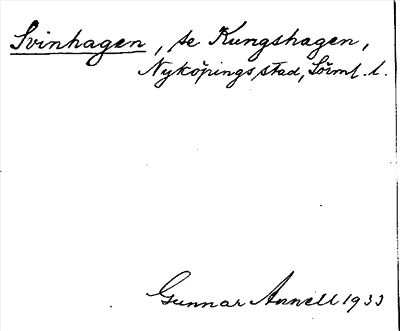 Svinhagen, se Kungshagen,
Nyköpings stad, Sörml. l.
Gunnar Annell 1933